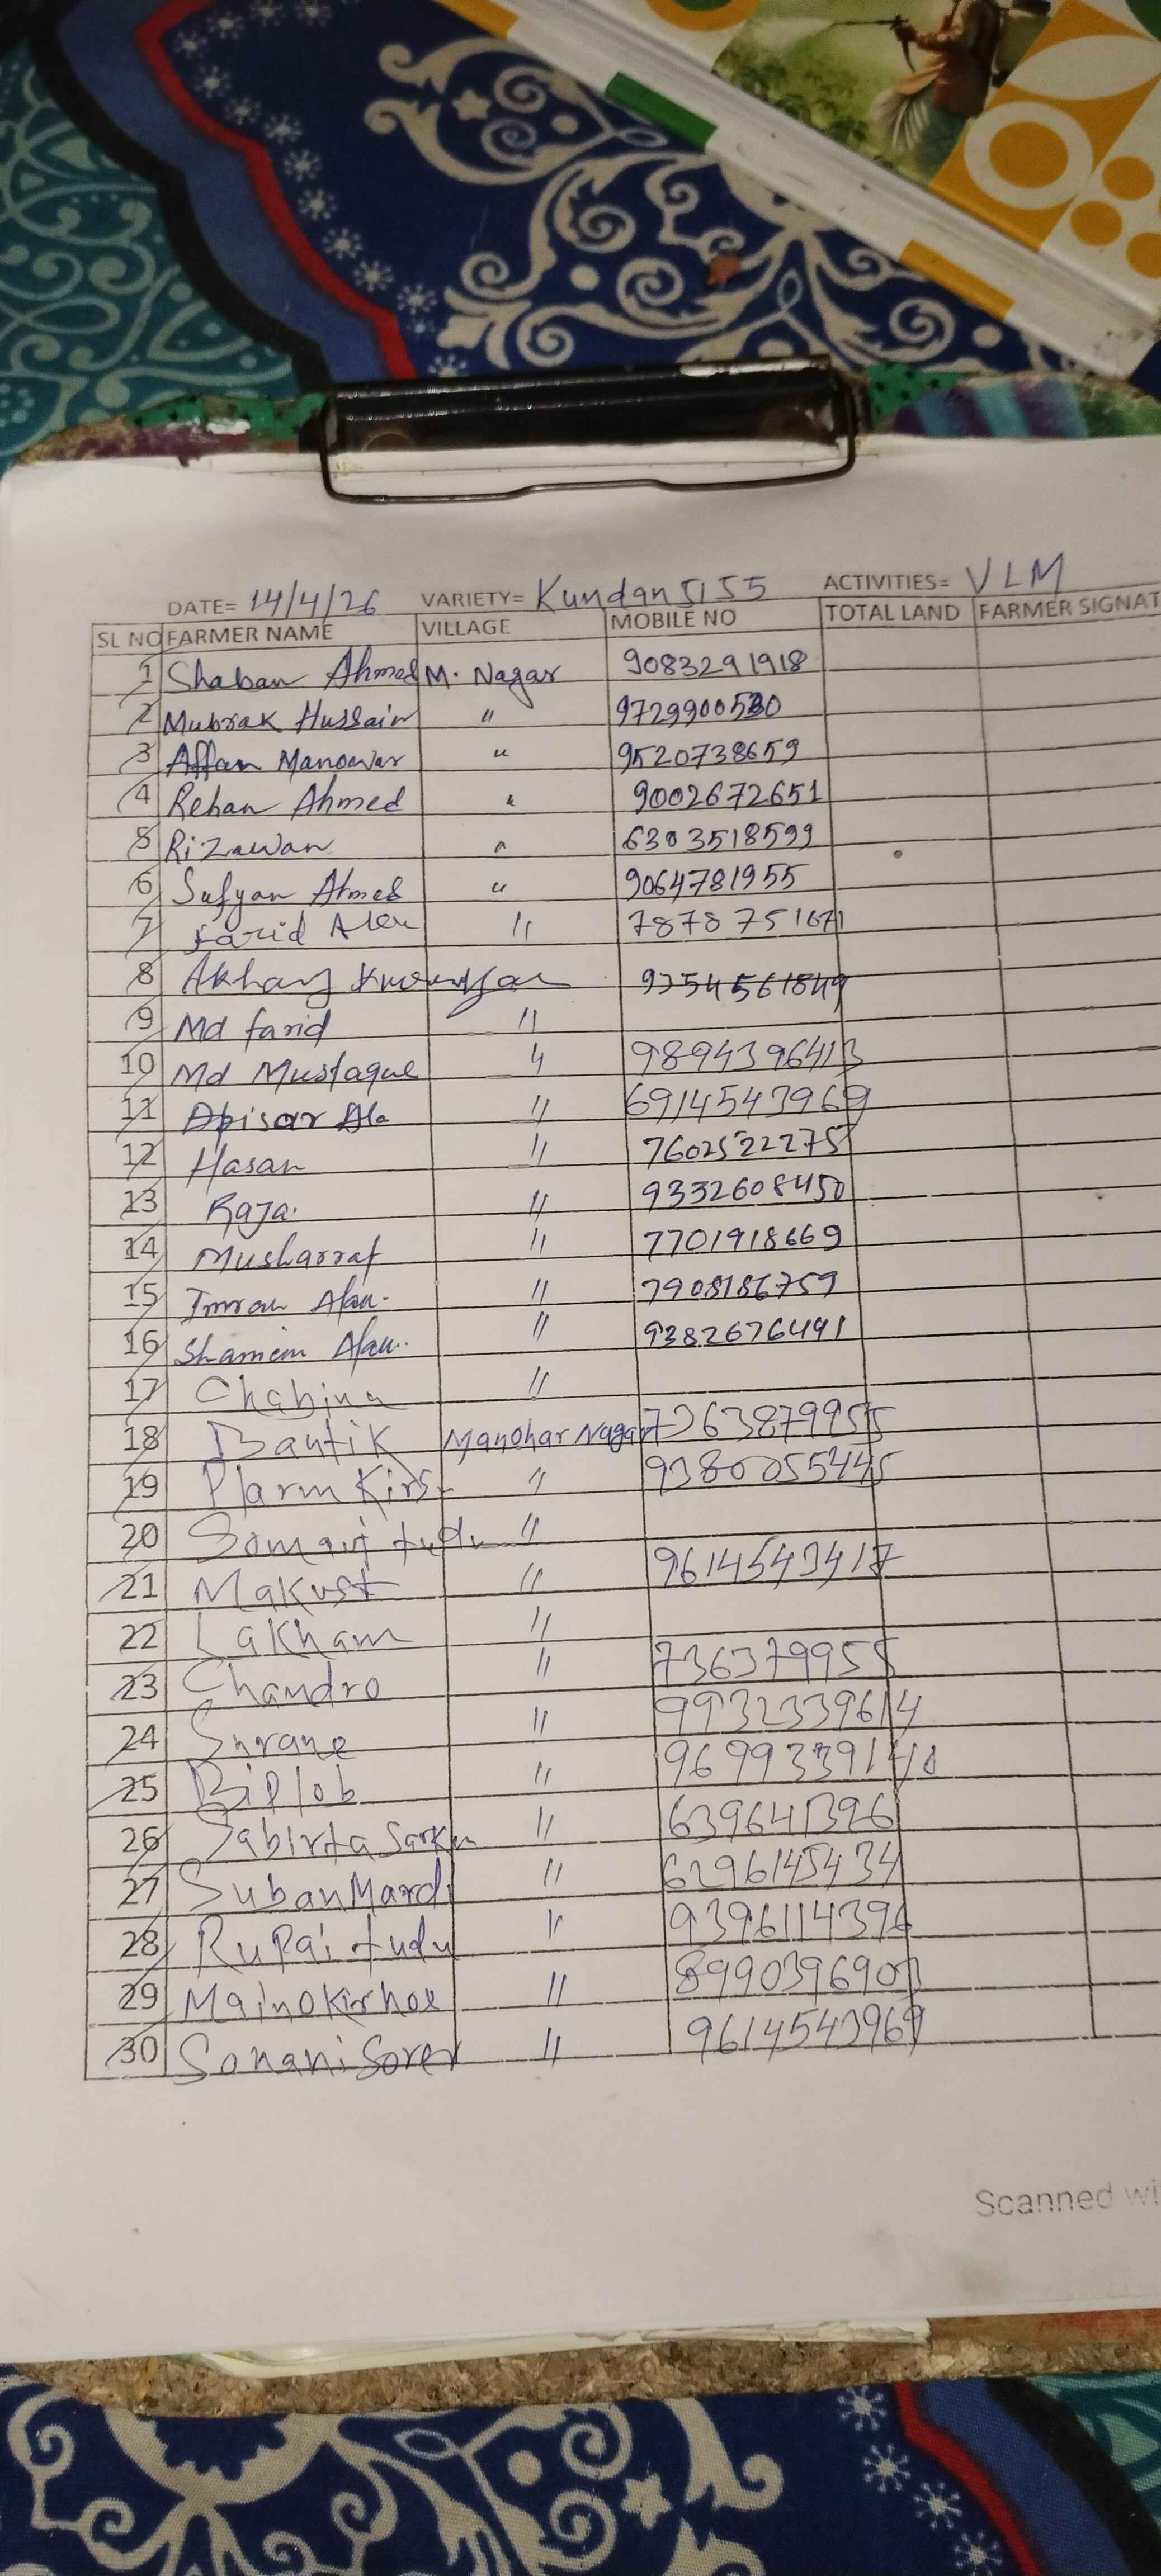 DATE= 14/4/26 VARIETY= Kundan 5155 ACTIVITIES= VLM
SL NO FARMER NAME VILLAGE MOBILE NO TOTAL LAND FARMER SIGNAT
1 Shaban Ahmed M. Nagar 9083291918
2 Mubrak Hussain " 9729900530
3 Affan Manowar " 9520738659
4 Rehan Ahmed " 9002672651
5 Rizawan " 6303518599
6 Sufyan Ahmed " 9064781955
7 Farid Alam " 7878751671
8 9354561849
9 Md farid "
10 Md Mustaque " 9894396413
11 " 6914543969
12 Hasan " 7602522275
13 Raja. " 9332608450
14 Musharraf " 7701918669
15 Imran Alam. " 7908186759
16 Shamim Alam.. " 9382676491
17 Chabina "
18 Bantik Manohar Nagar 7363879955
19 " 9380055445
20 tudu "
21 Makust " 9614543417
22 Lakham "
23 Chandro " 736379955
24 Surane " 9932339614
25 Biplob " 9699339140
26 Sabirta Sarkar " 639641396
27 Suban Mardi " 6296145434
28 Rupai tudu " 9396114396
29 " 8990396907
30 Sonani Soren " 9614543969
Scanned wi